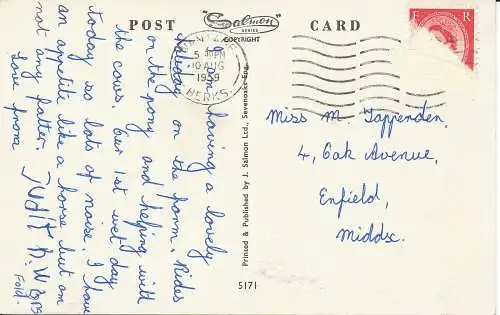 POST
"Salmon"
SERIES
COPYRIGHT
CARD
E R
WANTAGE
5 PM
10 AUG
1959
BERKS.
am having a lovely
holiday on the farm. Rides
on the pony and helping with
the cows. Our 1st wet day
today so lots of noise. I have
an appetite like a horse but am
not any fatter.
Love from
Judit
Miss M. Tappenden,
4, Oak Avenue,
Enfield,
Middsc.
Printed & Published by J. Salmon Ltd., Sevenoaks Eng.
5171